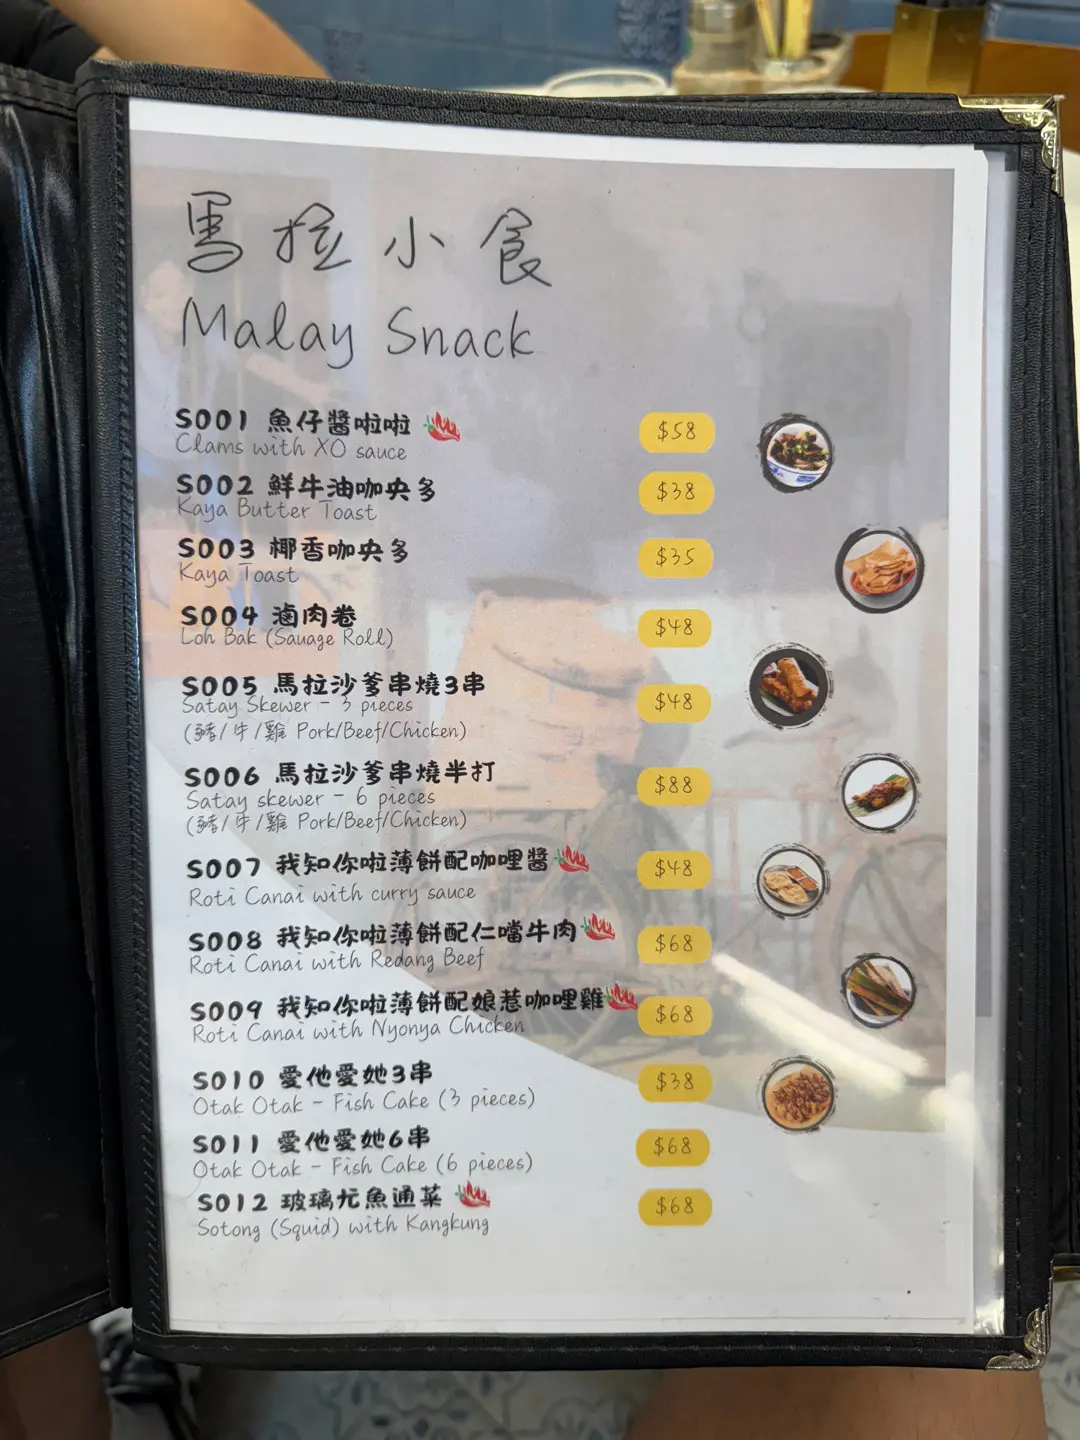 馬拉小食
Malay Snack
S001 魚仔醬啦啦 $58
Clams with XO sauce
S002 鮮牛油咖央多 $38
Kaya Butter Toast
S003 椰香咖央多 $35
Kaya Toast
S004 滷肉卷 $48
Loh Bak (Sauage Roll)
S005 馬拉沙爹串燒3串 $48
Satay Skewer - 3 pieces
(豬/牛/雞 Pork/Beef/Chicken)
S006 馬拉沙爹串燒半打 $88
Satay skewer - 6 pieces
(豬/牛/雞 Pork/Beef/Chicken)
S007 我知你啦薄餅配咖哩醬 $48
Roti Canai with curry sauce
S008 我知你啦薄餅配仁噹牛肉 $68
Roti Canai with Redang Beef
S009 我知你啦薄餅配娘惹咖哩雞 $68
Roti Canai with Nyonya Chicken
S010 愛他愛她3串 $38
Otak Otak - Fish Cake (3 pieces)
S011 愛他愛她6串 $68
Otak Otak - Fish Cake (6 pieces)
S012 玻璃尤魚通菜 $68
Sotong (Squid) with Kangkung